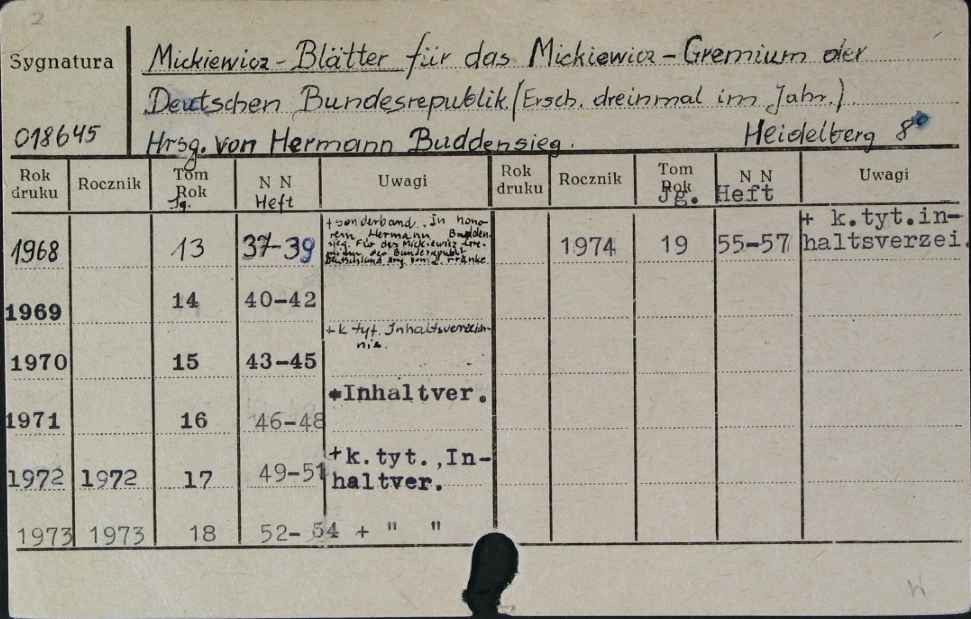 2
Sygnatura
018645
Mickiewicz-Blätter für das Mickiewicz-Gremium der
Deutschen Bundesrepublik. (Ersch. dreinmal im Jahr.)
Hrsg. von Hermann Buddensieg. Heidelberg 8°
Rok druku Rocznik Tom Rok Jg. N N Heft Uwagi Rok druku Rocznik Tom Rok Jg. N N Heft Uwagi
1968 13 37-39
+ Sonderband. In hono-
rem Hermann Budden-
sieg. Für das Mickiewicz Gre-
mium der Bundesrepublik
Deutschland von Franke
1974 19 55-57 + k.tyt.in-
haltsverzei.
1969 14 40-42
1970 15 43-45 + k tyt. Inhaltsverzeich-
nis.
1971 16 46-48 +Inhaltver.
1972 1972 17 49-51 +k.tyt.,In-
haltver.
1973 1973 18 52-54 + " "